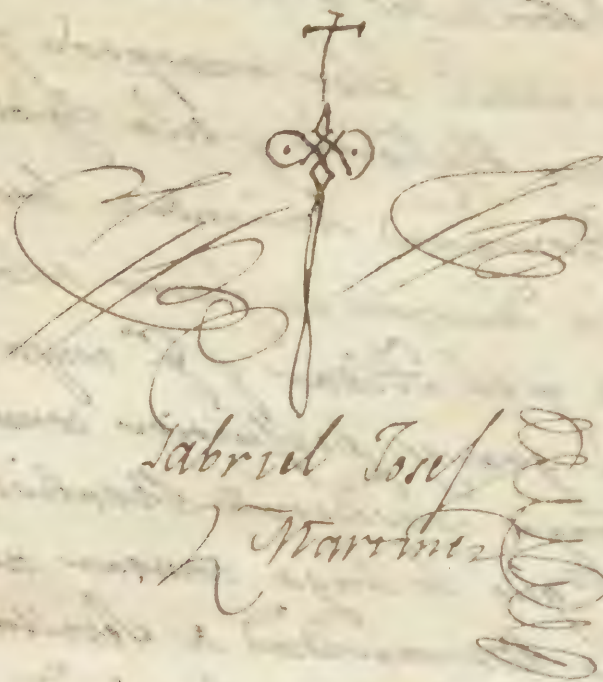 Gabriel Josef
Martinez